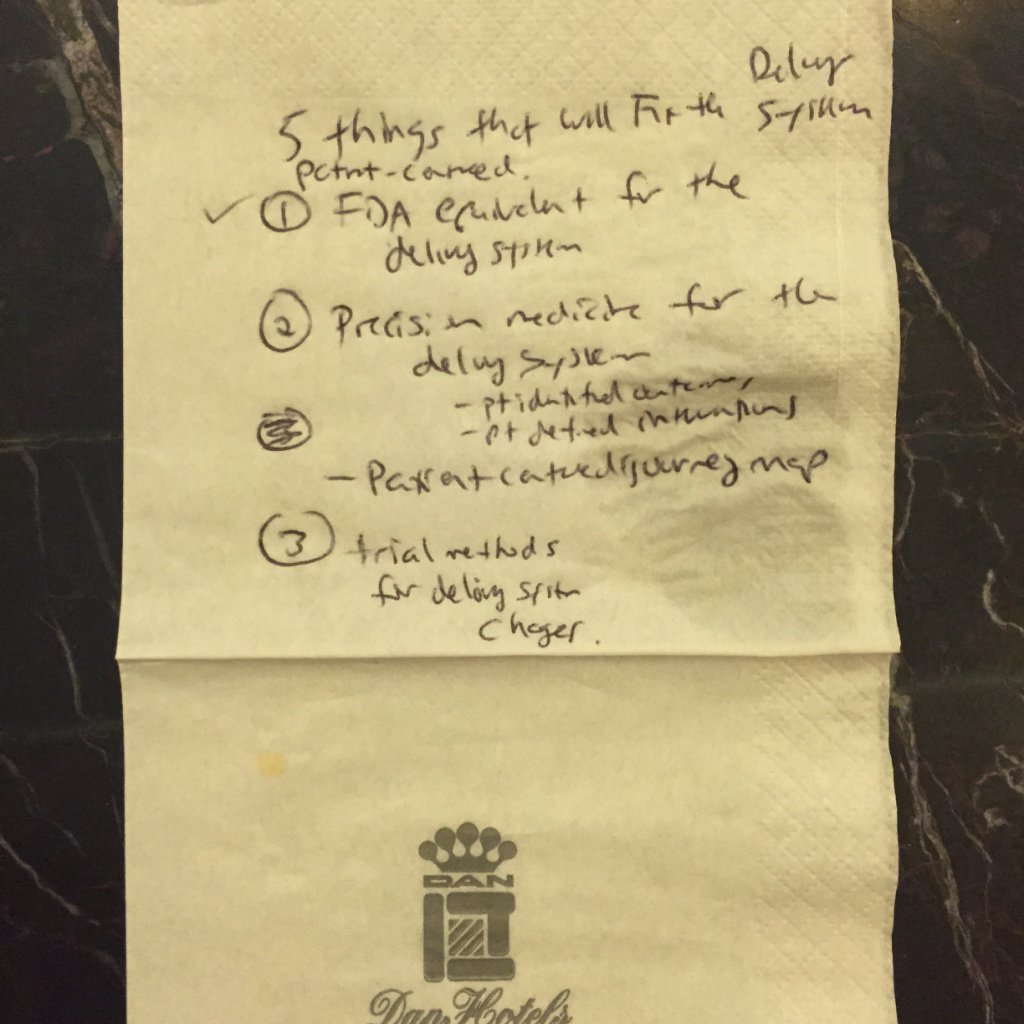 Delivery
5 things that will Fix the System
patient-centered.
✓ ① FDA equivalent for the
delivery system
② Precision medicine for the
delivery system
- pt identified outcomes
- pt defined interventions
- Patient centered journey map
③ trial methods
for delivery system
changes.
DAN
Dan Hotels